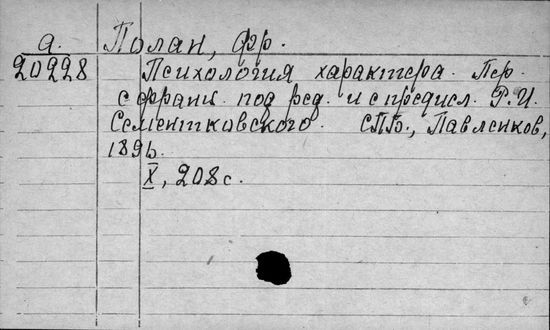 а. Полан, Фр.
20228 Психология характера. Пер.
с франц. под ред. и с предисл. Р. И.
Сементковского. СПБ., Павленков,
1896.
X, 208 с.